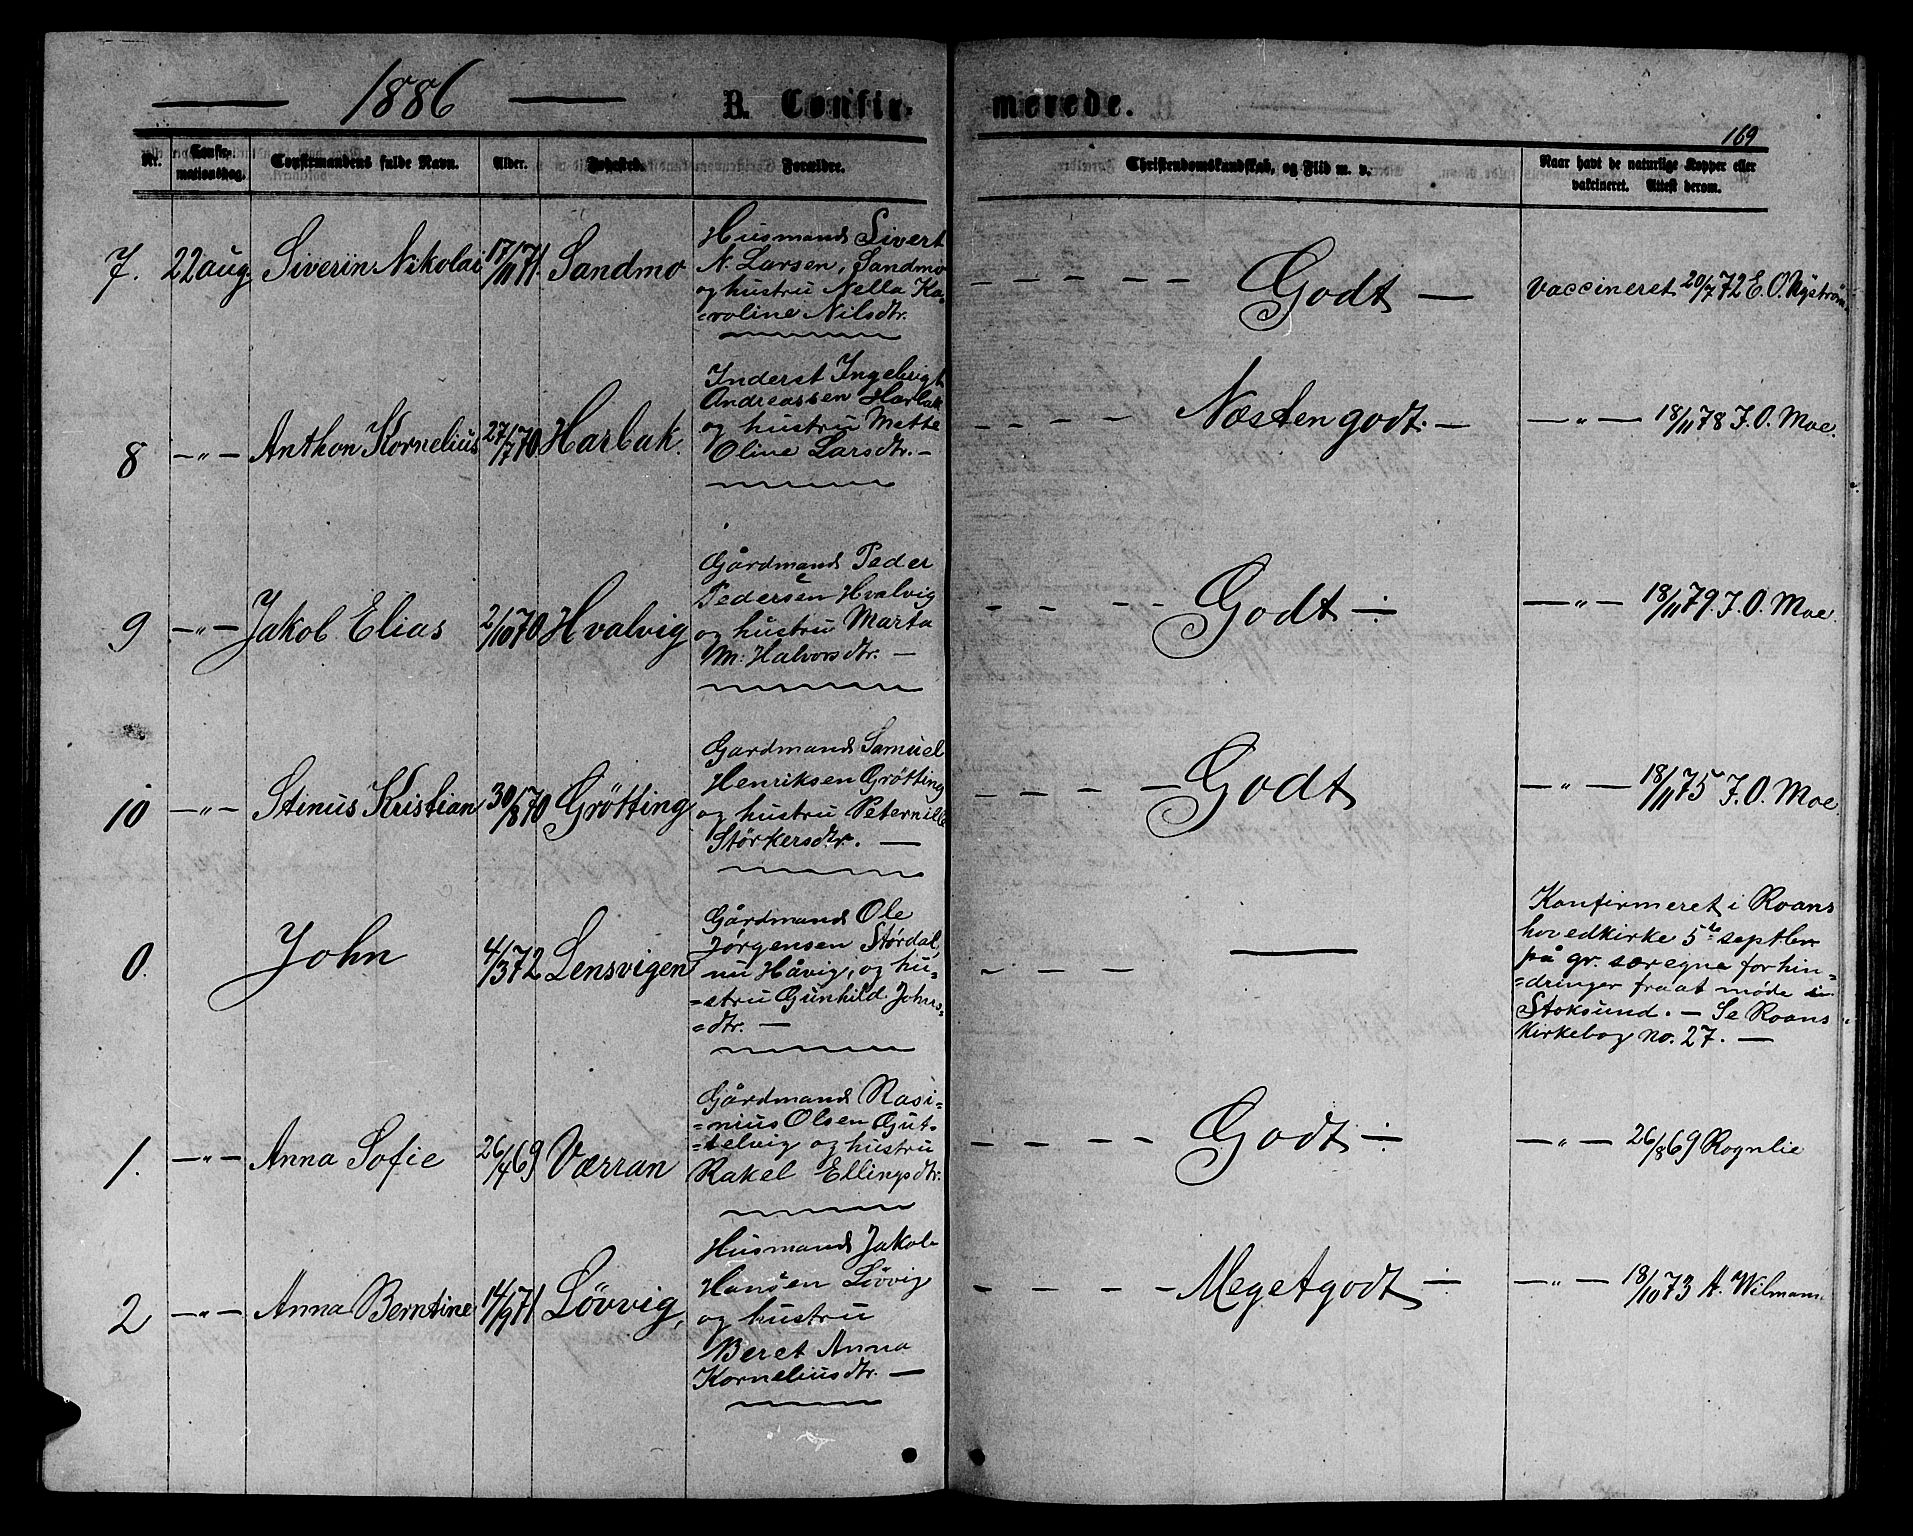 1886
B. Confirmerede.
169
Nr.
Confirmationsdag.
Confirmandens fulde Navn.
Alder.
Fødested.
Forældre.
Christendomskundskab, og Flid m. v.
Naar havt de naturlige Kopper eller vakcineret. Attest derom.
7. 22 aug Siverin Nikolai 17/11 71. Sandmo
Husmand Sivert
N. Larsen, Sandmo
og hustru Nella Ka=
=roline Nilsdtr.
Godt —
Vaccineret 20/7 72 E. O. Nyström
8 —"— Anthon Kornelius 27/7 70 Harbak.
Inderst Ingebrigt
Andreassen Harbak
og hustru Mette
Oline Larsdtr. —
Næsten godt. —
—"— 18/11 78 J. O. Moe.
9 —"— Jakob Elias 2/10 70 Hvalvig
Gårdmand Peder
Pedersen Hvalvig
og hustru Marta
M. Halvorsdtr. —
Godt —
—"— 18/11 79. J. O. Moe.
10 —"— Stinus Kristian 30/8 70 Gröttíng
Gardmand Samuel
Henriksen Grötting
og hustru Peternille
Störkersdtr. —
Godt
—"— 18/11 75 J. O. Moe
0. John 4/3 72 Lensvigen
Gårdmand Ole
Jørgensen Størdal,
nu Håvig, og hu=
=stru Gunhild Johns=
=dtr. —
—
Konfirmeret i Roans
hovedkirke 5te septbr
på gr. særegne forhin=
=dringer fra at møde i
Stoksund. — Se Roans
kirkebog no. 27. —
1. —"— Anna Sofie 26/4 69 Værran
Gårdmand Rasi=
=nius Olsen Gut=
=telvig og hustru
Rakel Ellingsdtr.
Godt —
—"— 26/8 69 Rognlie
2 —"— Anna Berntine 14/9 71 Lövvig,
Husmand Jakob
Hansen Lövvig
og hustru
Beret Anna
Korneliusdtr. —
Meget godt —
—"— 18/10 73 A. Wilmann